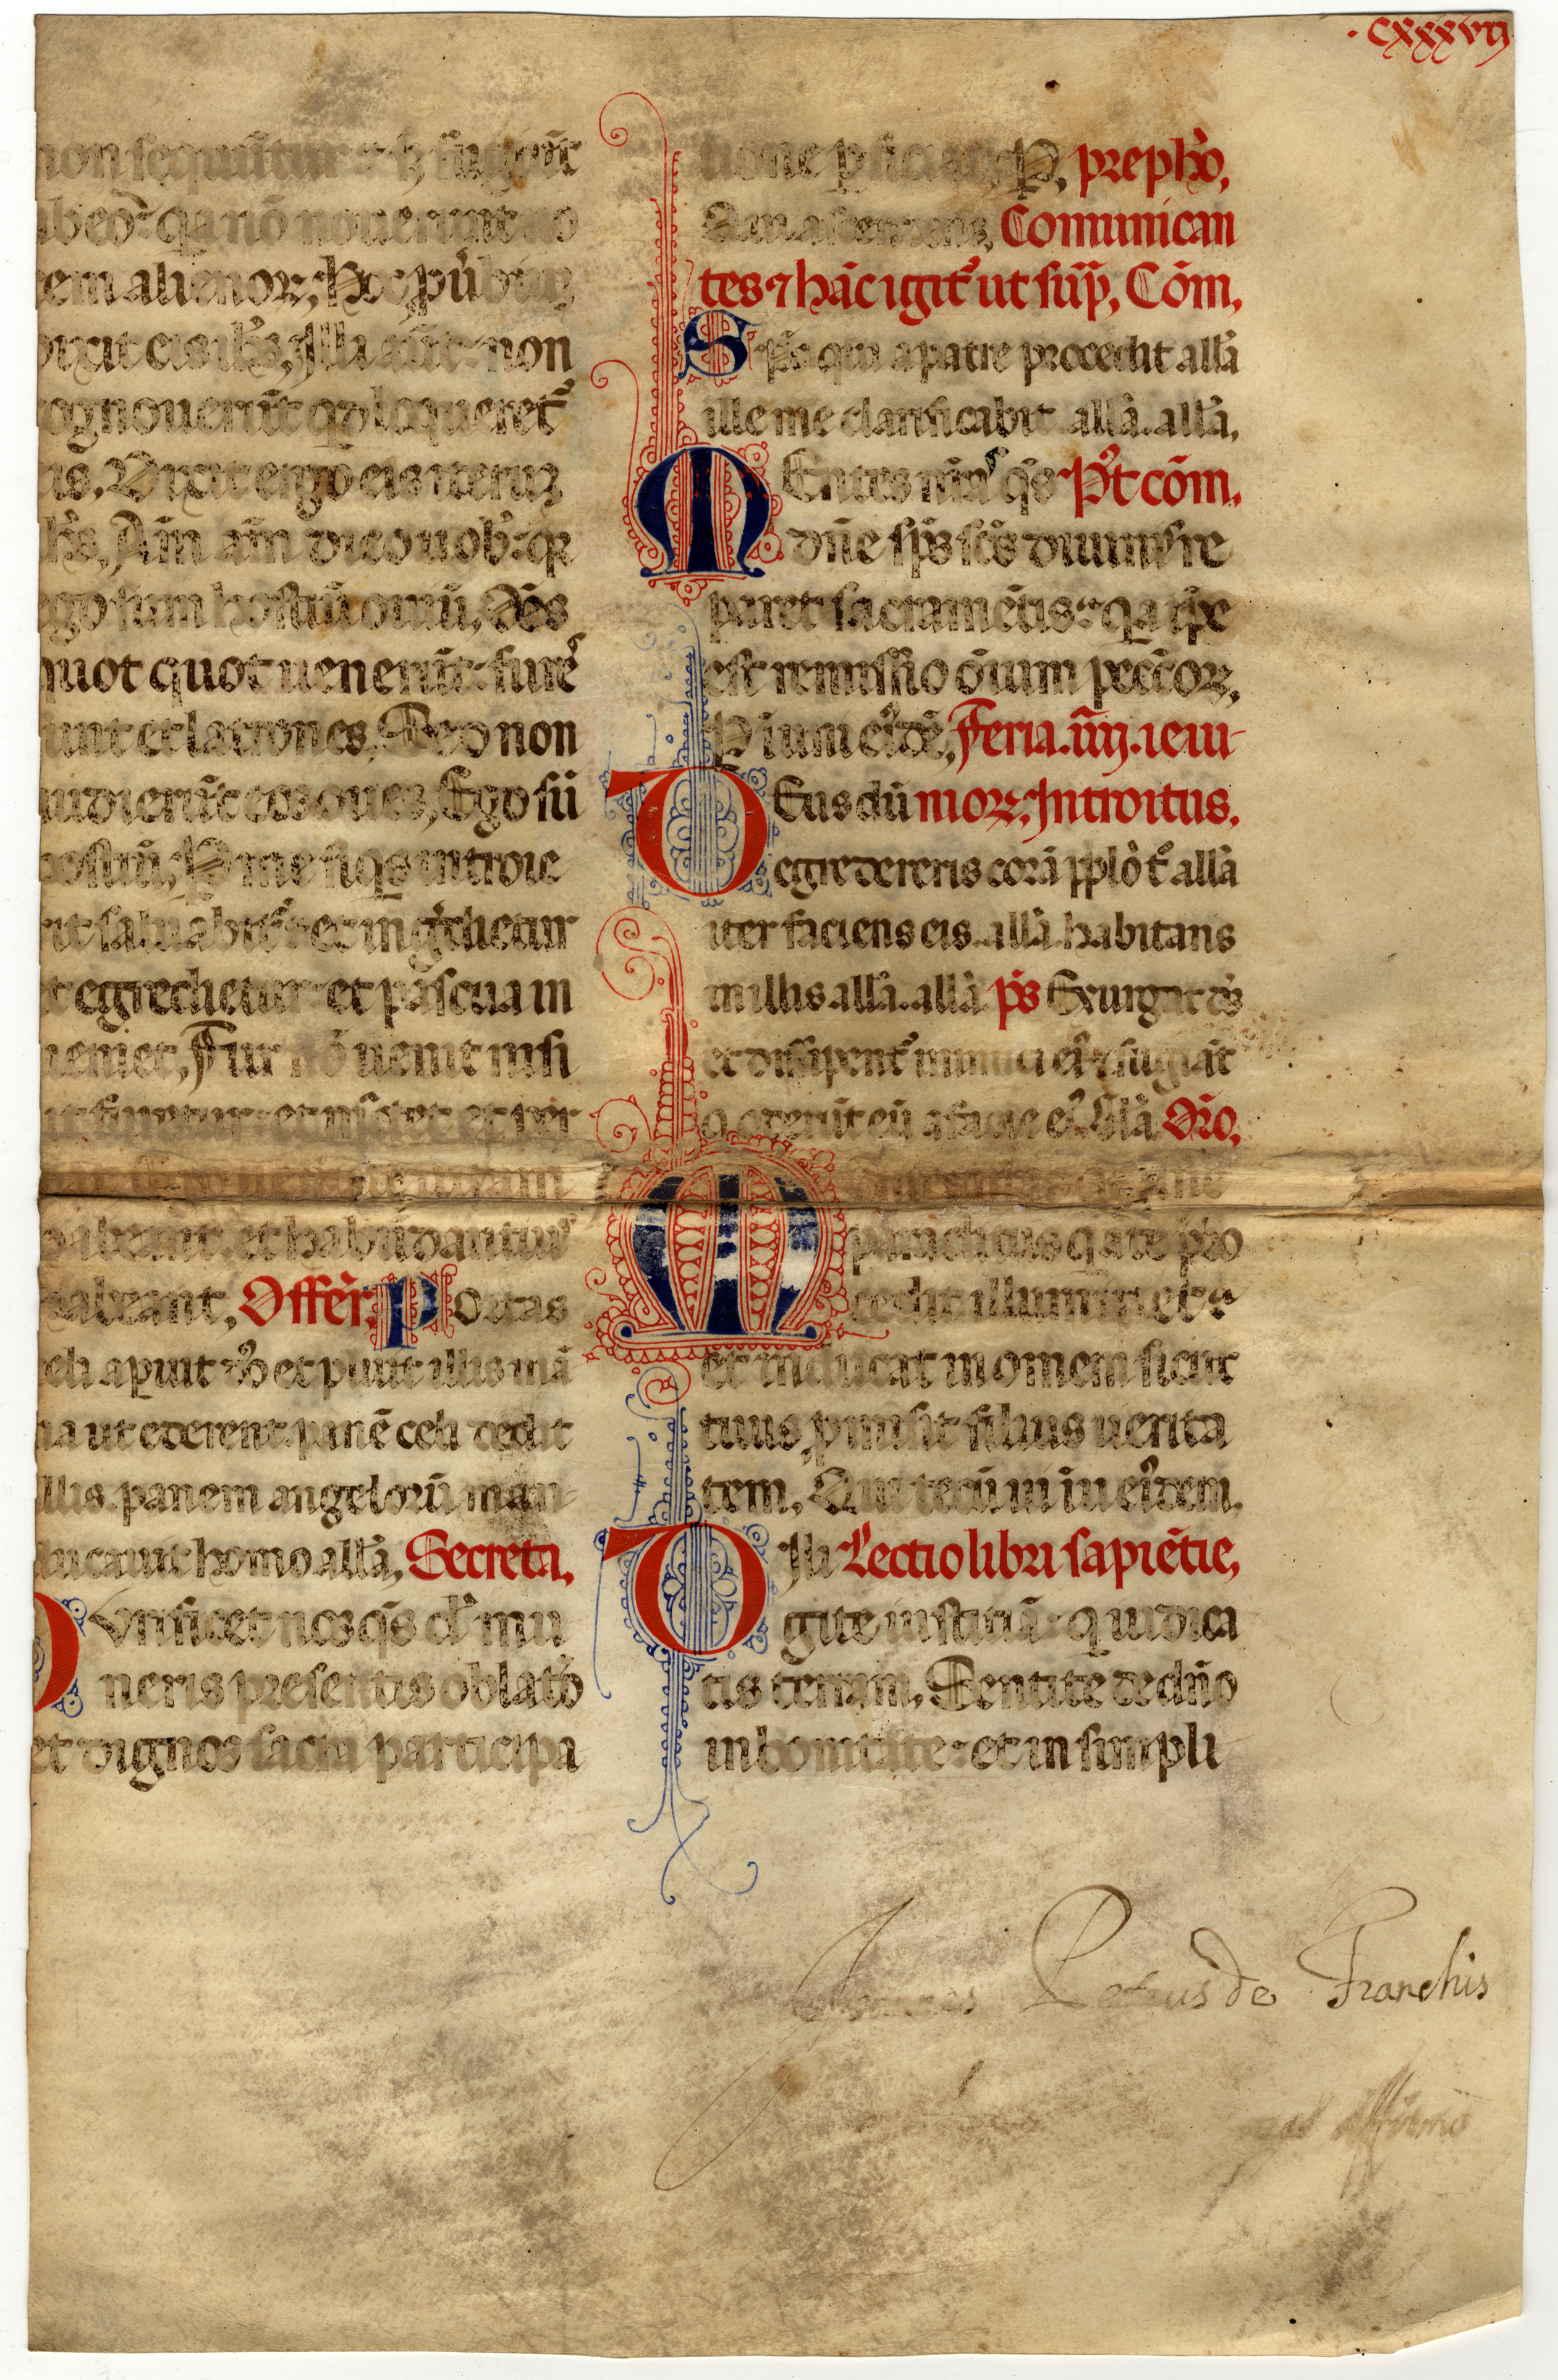 .cxxxvij.
non sequūtur · sʒ fugiūt
ab eo: qa nō noverunt uo
cem alienoꝝ, Hoc puerbiuʒ
dixit eis ihs, Illi aūt non
cognouerūt qd loqueret᷑
eis, Dixit ergo eis iteruʒ
ihs, Am̄ am̄ dico uob: qꝛ
ego sum hostiū ouiū, Oēs
quot quot uenerūt: fures
sunt et latrones, Sed non
audierūt eos oues, Ego sū
hostiū, P me siqs introie
rit saluabit᷑: et ingredietur
et egredietur: et pascua in
ueniet, Fur nō uenit nisi
ut furetur: et mactet et per
ut uitam
habeant, et habūdantius
habeant, Offer̄. Portas
celi apuit dn̄s et pluit illis mā
na ut ederent: panē celi dedit
illis. panem angelorū man
ducauit homo allā, Secreta.
Purificet nos qs dn̄e mu
neris presentis oblatio
et dignos sacra participa
tione pficiat, P, prephō,
Qui ascendens, Comunican
tes ⁊ hāc igit᷑ ut sup̄, Cōm,
Sp̄s qui a patre procedit allā
ille me clarificabit. allā. allā,
Mentes nrās qs Pt cōm.
dn̄e sp̄s scs diuinis re
paret sacramētis: qa ipe
est remissio oīum pecc̄oꝝ,
P ium eiꝰdē, Feria .iiij. ieiu
Deus dū nioꝝ: Introitus.
egredereris corā pplo t᷑ allā
iter faciens eis. allā. habitans
in illis allā. allā p̄s Exurgat ds
et dissipent᷑ inimici eiꝰ: ⁊ fugiāt
q oderūt eū a facie eiꝰ. Glā Orō,
M
paraclitus q a te pro
cedit illuminet:
et inducat in omnem sicut
tuus pmisit filius uerita
tem, Qui tecū uī in eiꝰdem.
D Ili Lectio libri sapiētie,
gite iustitiā: q iudica
tis terram. Sentite de dn̄o
in bonitate: et in simpli
Joannes Petrus de Franchis